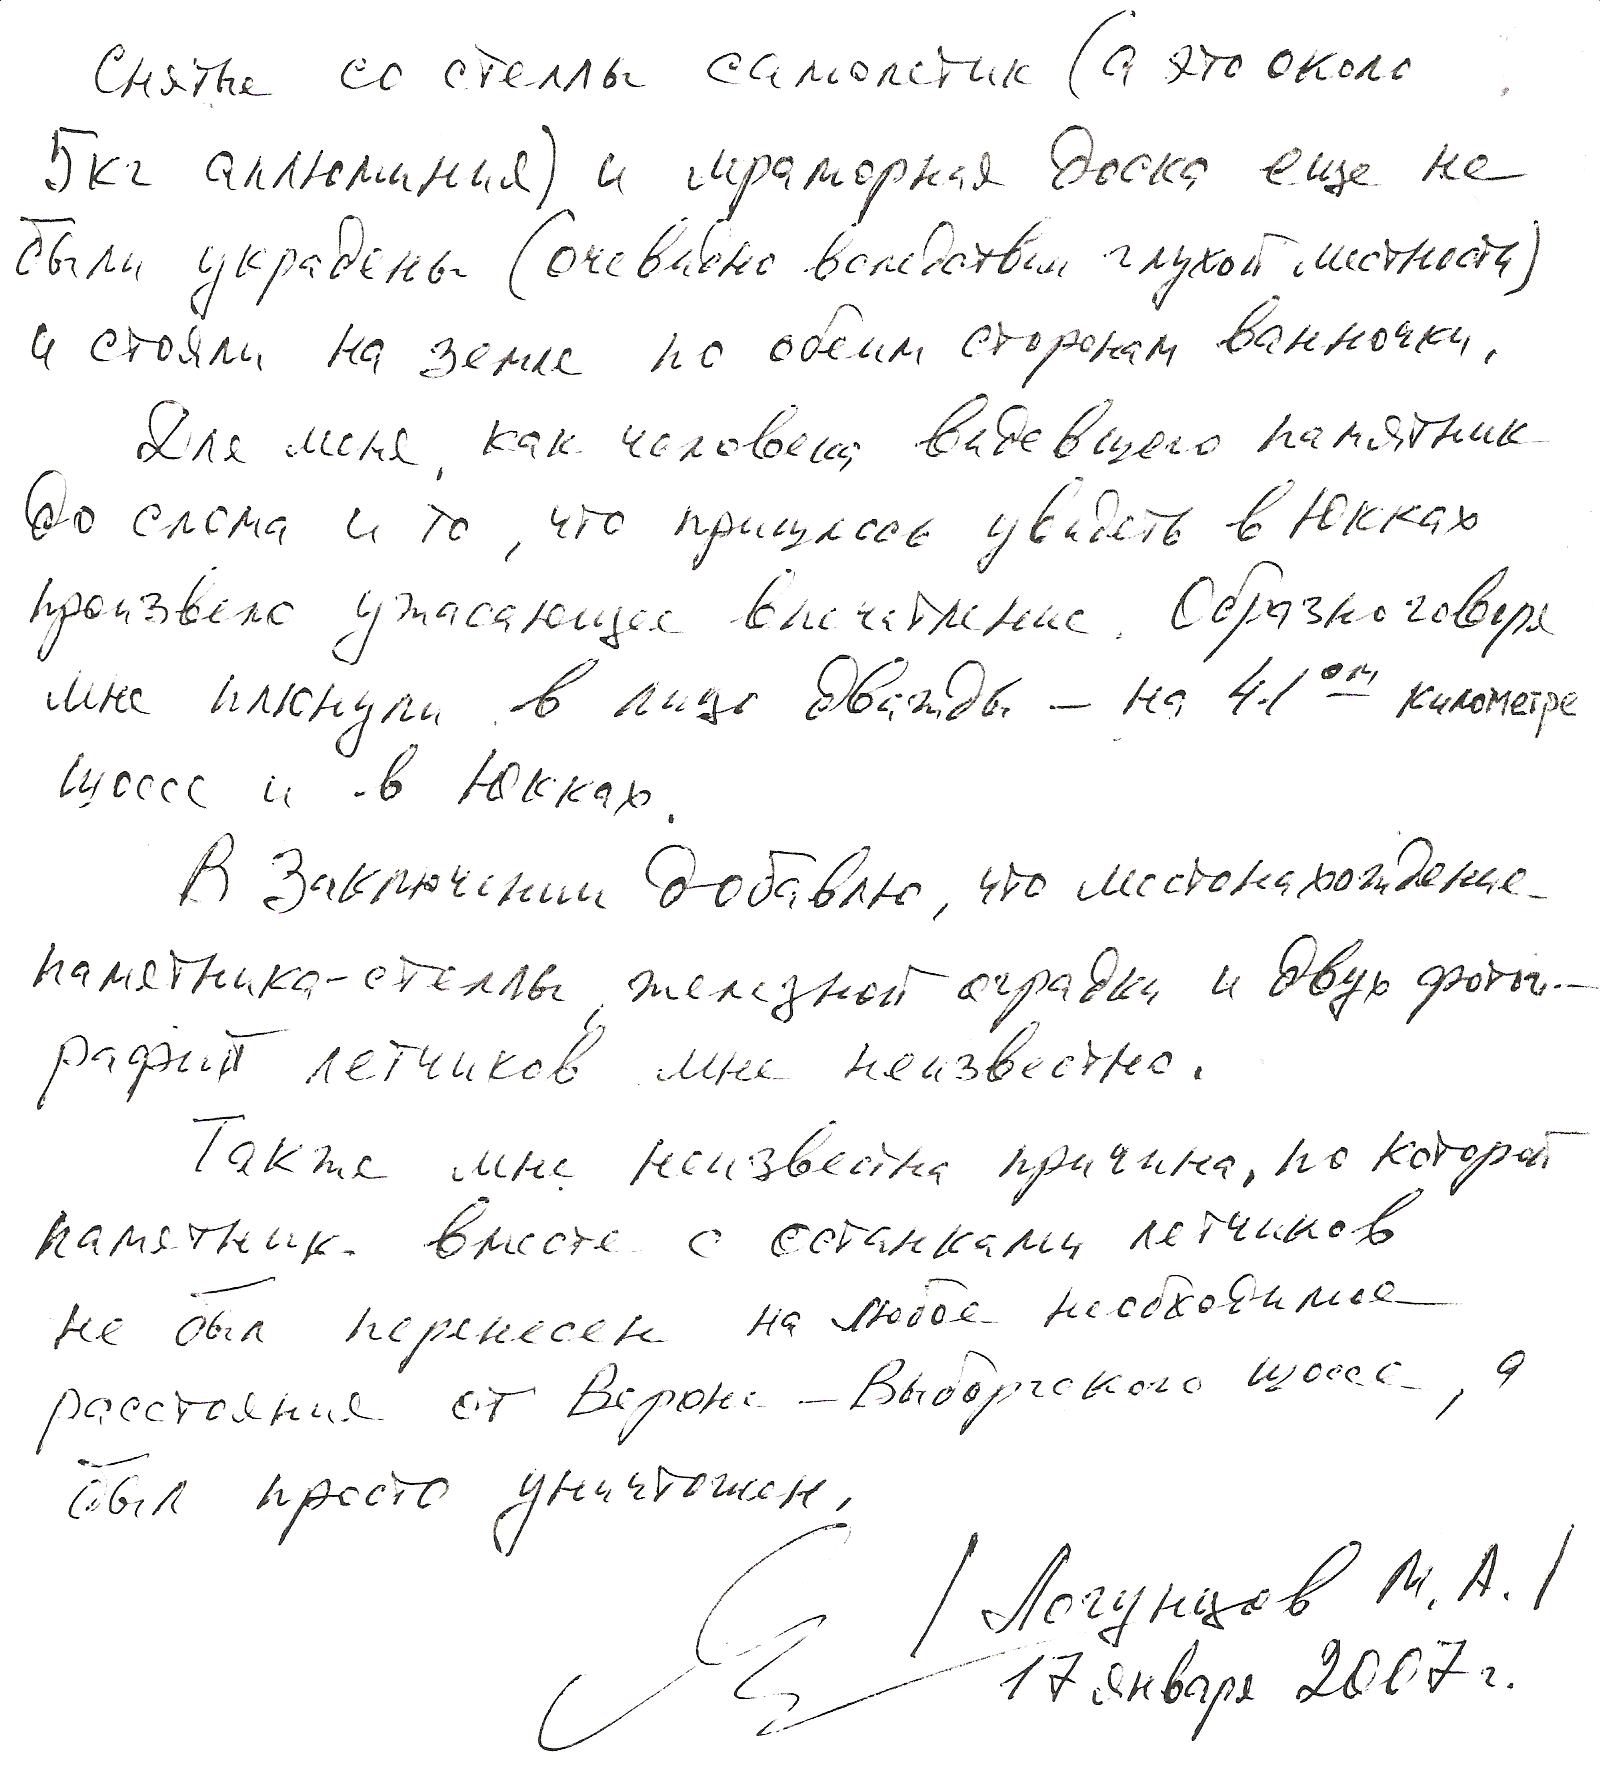 Снятые со стеллы самолетик (а это около
5кг аллюминия) и мраморная доска еще не
были украдены (очевидно вследствии глухой местности)
и стояли на земле по обеим сторонам ванночки.
Для меня, как человека видевшего памятник
до слома и то, что пришлось увидеть в Юкках
произвело ужасающее впечатление. Образно говоря
мне плюнули в лицо дважды – на 41ом километре
шоссе и в Юкках.
В заключении добавлю, что местонахождение
памятника-стеллы, железной оградки и двух фотог-
рафий летчиков мне неизвестно.
Также мне неизвестна причина, по которой
памятник вместе с останками летчиков
не был перенесен на любое необходимое
расстояния от Верхне-Выборгского шоссе, а
был просто уничтожен.
/Логунцов М. А./
17 января 2007 г.